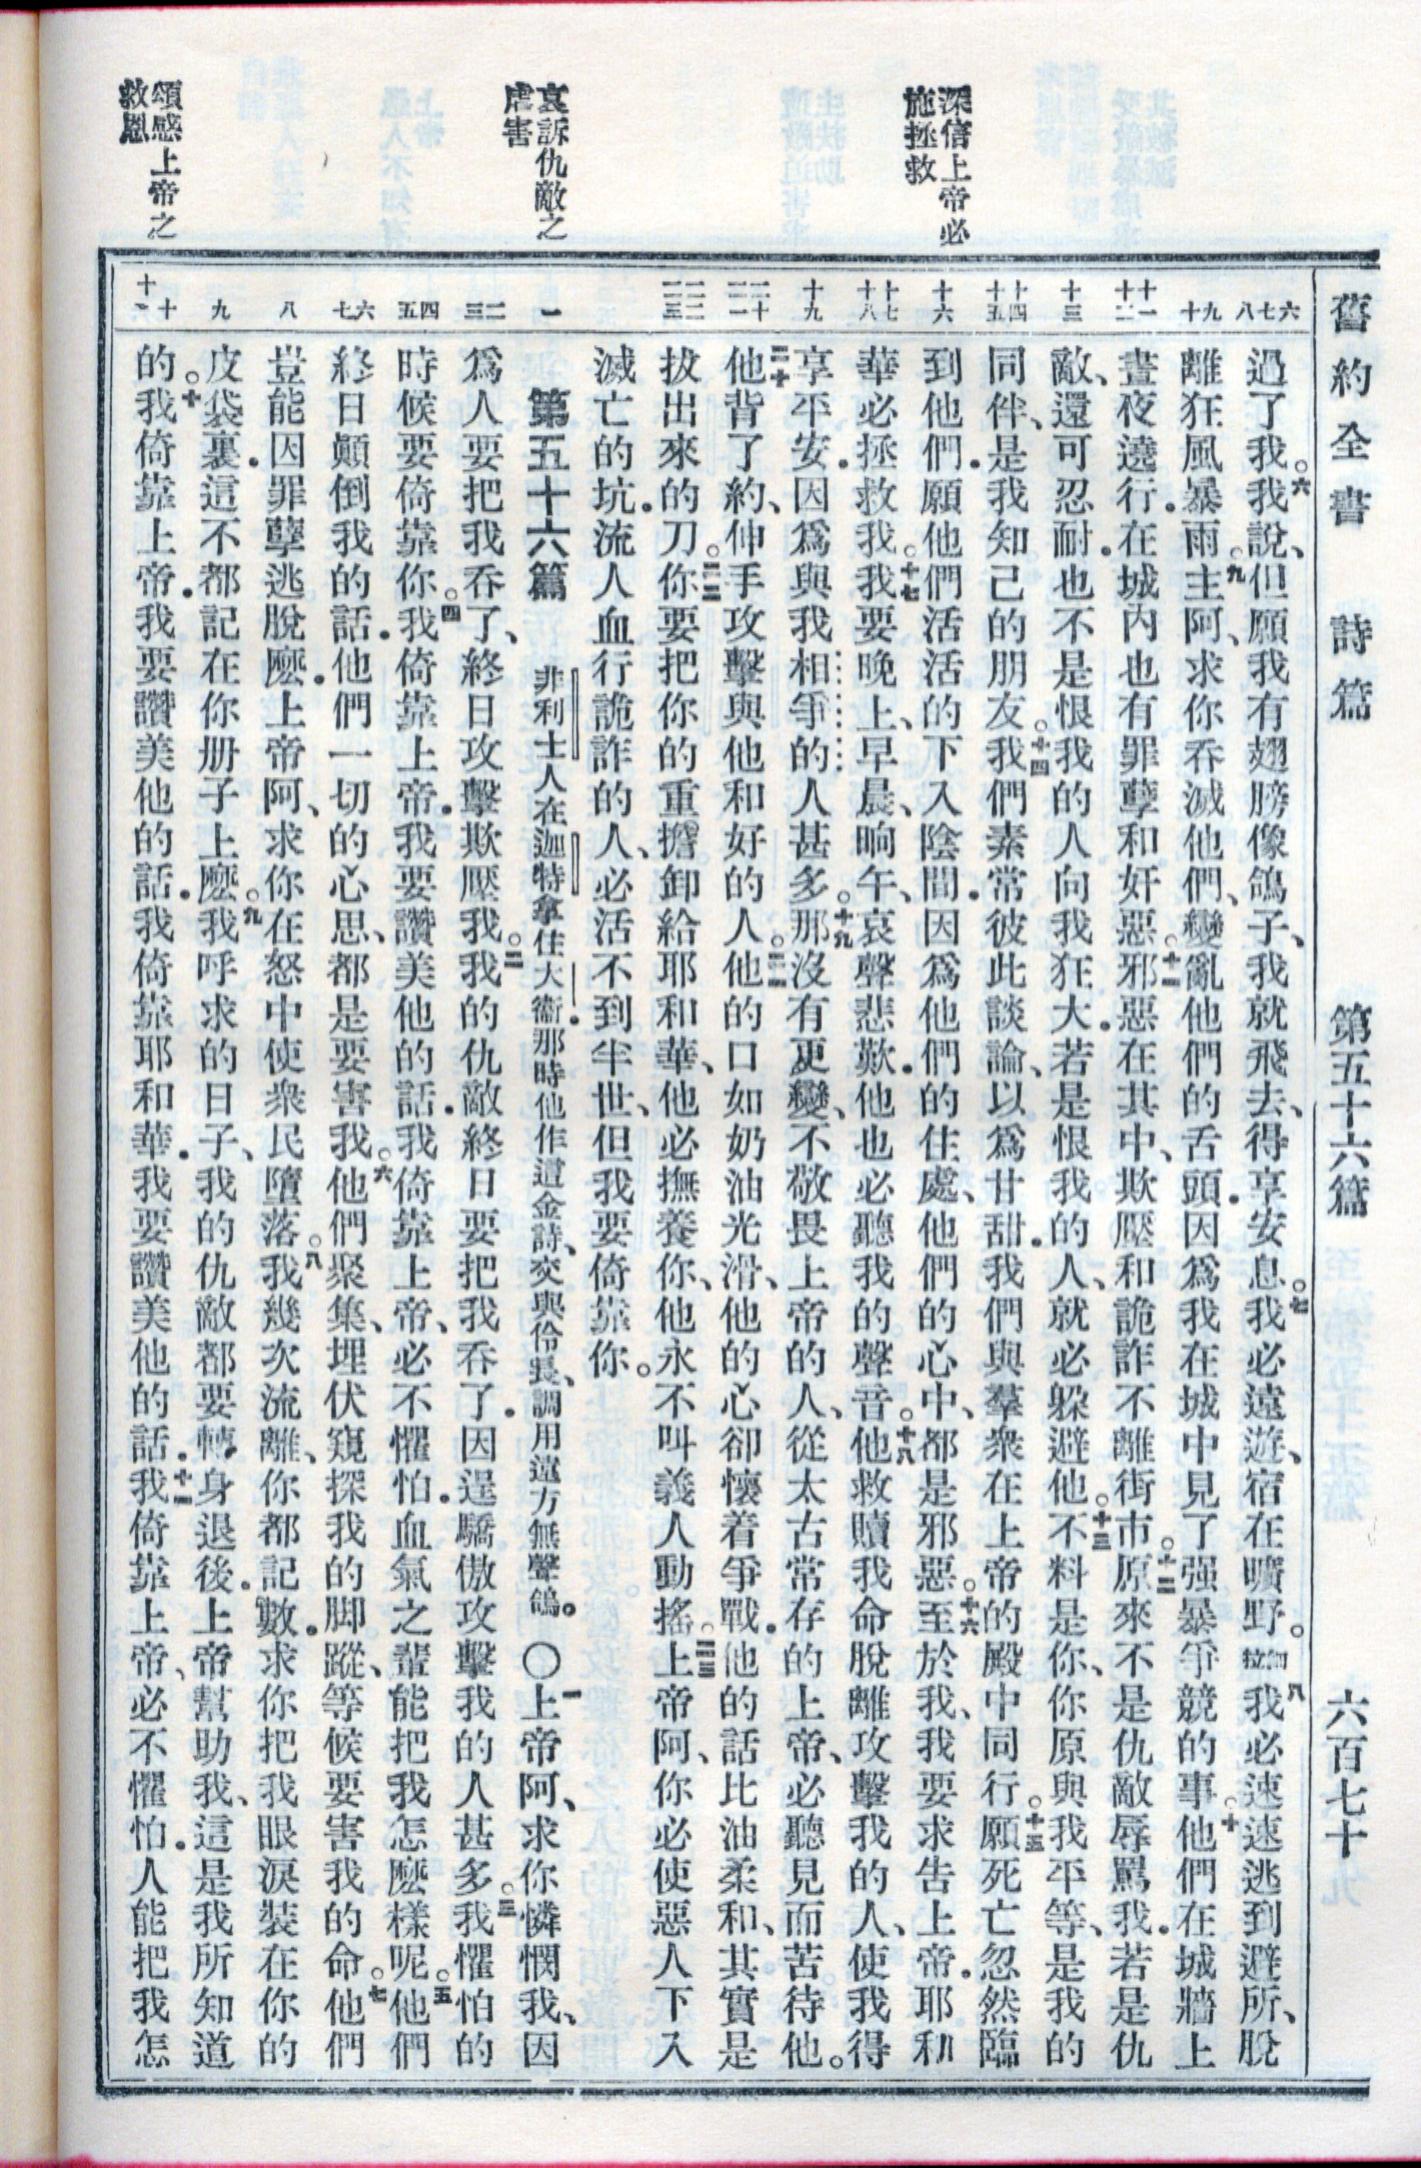 舊約全書　詩篇　第五十六篇　六百七十
深信上帝必
施拯救
哀訴仇敵之
虐害
頌感上帝之
救恩
六七八
過了我。六我說、但願我有翅膀像鴿子、我就飛去、得享安息。七我必遠遊、宿在曠野。細拉八我必速速逃到避所、脫
九十
離狂風暴雨。九主阿、求你吞滅他們、變亂他們的舌頭．因爲我在城中見了强暴爭競的事。十他們在城牆上
十一十二
晝夜遶行．在城內也有罪孽和奸惡。十一邪惡在其中、欺壓和詭詐不離街市。十二原來不是仇敵辱罵我．若是仇
十三
敵、還可忍耐．也不是恨我的人向我狂大．若是恨我的人、就必躲避他。十三不料是你、你原與我平等、是我的
十四十五
同伴、是我知己的朋友。十四我們素常彼此談論、以爲甘甜．我們與羣衆在上帝的殿中同行。十五願死亡忽然臨
十六
到他們．願他們活活的下入陰間．因爲他們的住處、他們的心中、都是邪惡。十六至於我、我要求告上帝．耶和
十七十八
華必拯救我。十七我要晚上、早晨、晌午、哀聲悲歎．他也必聽我的聲音。十八他救贖我命脫離攻擊我的人、使我得
十九
享平安．因爲與我相爭的人甚多。十九那沒有更變、不敬畏上帝的人、從太古常存的上帝、必聽見而苦待他。
二十二一
二十他背了約、伸手攻擊與他和好的人。二一他的口如奶油光滑、他的心卻懷着爭戰．他的話比油柔和、其實是
二二二三
拔出來的刀。二二你要把你的重擔卸給耶和華、他必撫養你、他永不叫義人動搖。二三上帝阿、你必使惡人下入
滅亡的坑．流人血行詭詐的人、必活不到半世、但我要倚靠你。
一
第五十六篇　非利士人在迦特拿住大衞．那時他作這金詩、交與伶長、調用遠方無聲鴿。〇一上帝阿、求你憐憫我、因
二三
爲人要把我吞了、終日攻擊欺壓我。二我的仇敵終日要把我吞了．因逞驕傲攻擊我的人甚多。三我懼怕的
四五
時候要倚靠你。四我倚靠上帝．我要讚美他的話．我倚靠上帝、必不懼怕．血氣之輩能把我怎麽樣呢。五他們
六七
終日顚倒我的話．他們一切的心思、都是要害我。六他們聚集、埋伏窺探我的脚蹤、等候要害我的命。七他們
八
豈能因罪孽逃脫麽．上帝阿、求你在怒中使衆民墮落。八我幾次流離、你都記數．求你把我眼淚裝在你的
九
皮袋裏．這不都記在你册子上麽。九我呼求的日子、我的仇敵都要轉身退後．上帝幫助我、這是我所知道
十十一
的。十我倚靠上帝．我要讚美他的話．我倚靠耶和華．我要讚美他的話．十一我倚靠上帝、必不懼怕．人能把我怎